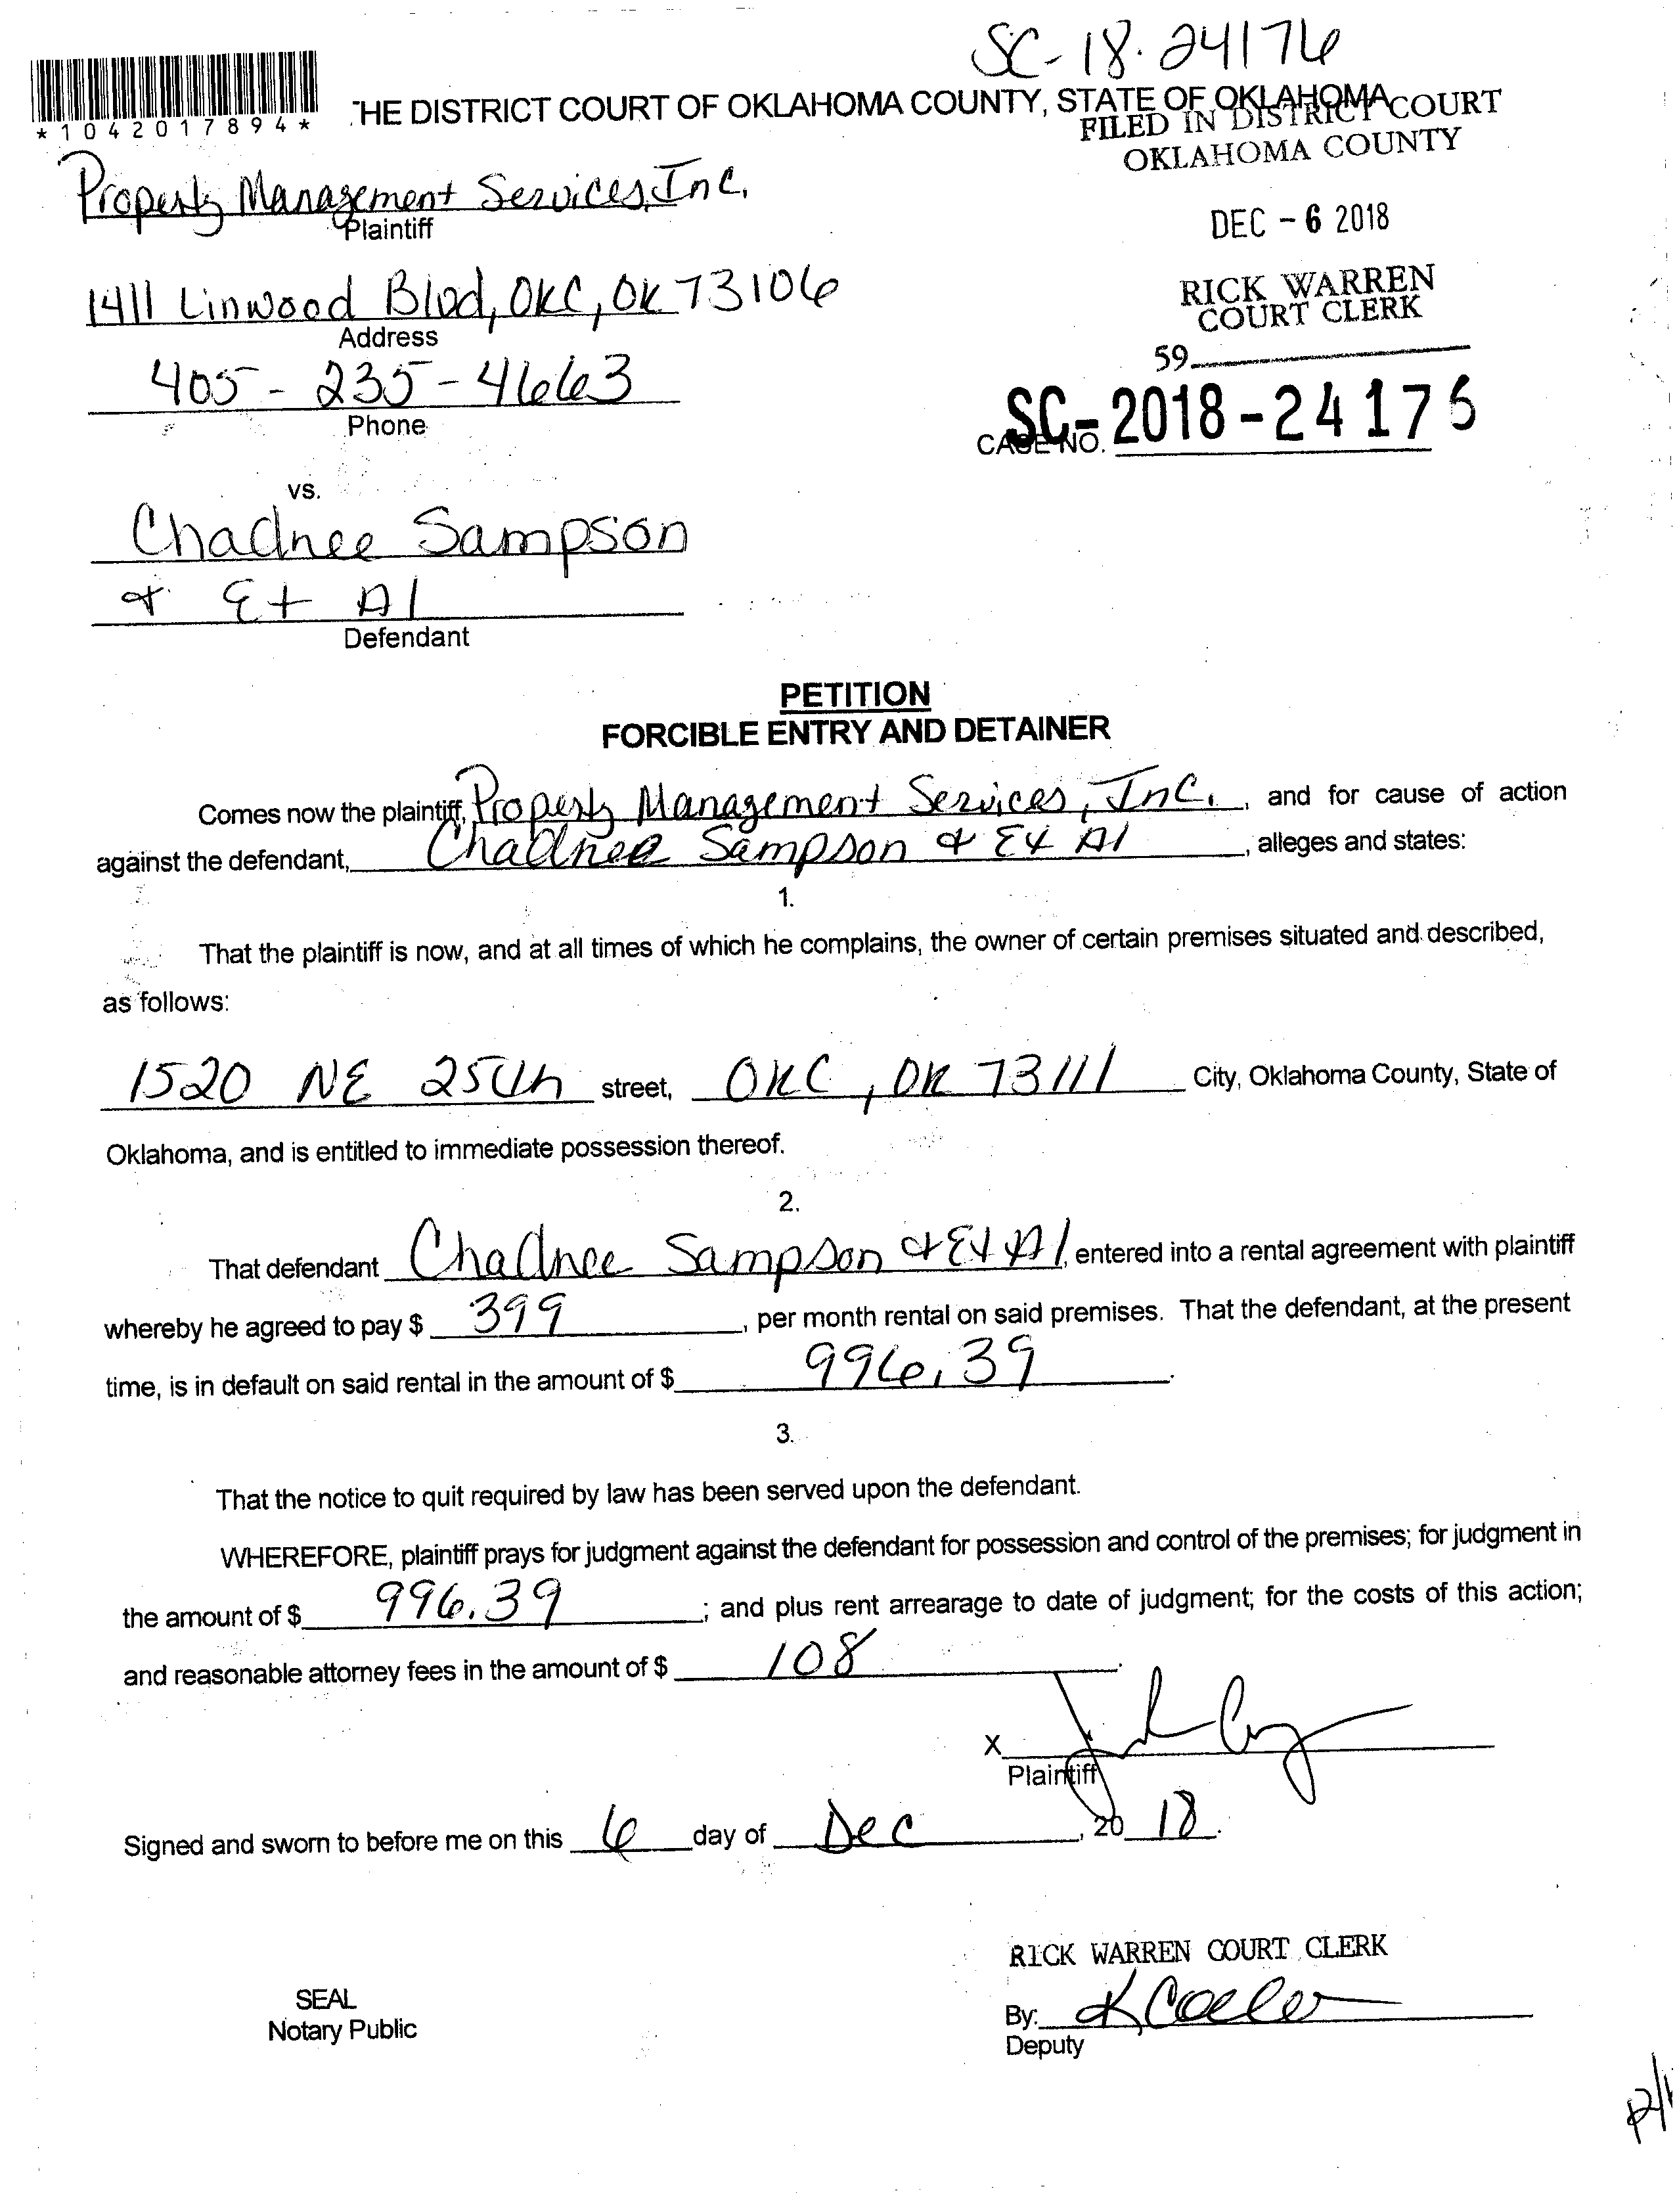 SC-18-24176
*1042017894*
THE DISTRICT COURT OF OKLAHOMA COUNTY, STATE OF OKLAHOMA
FILED IN DISTRICT COURT
OKLAHOMA COUNTY
Property Management Services, Inc.
Plaintiff
DEC - 6 2018
1411 Linwood Blvd, OKC, OK 73106
Address
RICK WARREN
COURT CLERK
59
405-235-4663
Phone
CASE NO. SC-2018-24176
vs.
Chadnee Sampson
& Et Al
Defendant
PETITION
FORCIBLE ENTRY AND DETAINER
Comes now the plaintiff, Property Management Services, Inc., and for cause of action
against the defendant, Chadnee Sampson & Et Al, alleges and states:
1.
That the plaintiff is now, and at all times of which he complains, the owner of certain premises situated and described,
as follows:
1520 NE 25th street, OKC, OK 73111 City, Oklahoma County, State of
Oklahoma, and is entitled to immediate possession thereof.
2.
That defendant Chadnee Sampson & Et Al, entered into a rental agreement with plaintiff
whereby he agreed to pay $ 399, per month rental on said premises. That the defendant, at the present
time, is in default on said rental in the amount of $ 996.39.
3.
That the notice to quit required by law has been served upon the defendant.
WHEREFORE, plaintiff prays for judgment against the defendant for possession and control of the premises; for judgment in
the amount of $ 996.39; and plus rent arrearage to date of judgment; for the costs of this action;
and reasonable attorney fees in the amount of $ 108.
X
Plaintiff
Signed and sworn to before me on this 6 day of Dec, 20 18.
RICK WARREN COURT CLERK
SEAL
Notary Public
By:
Deputy